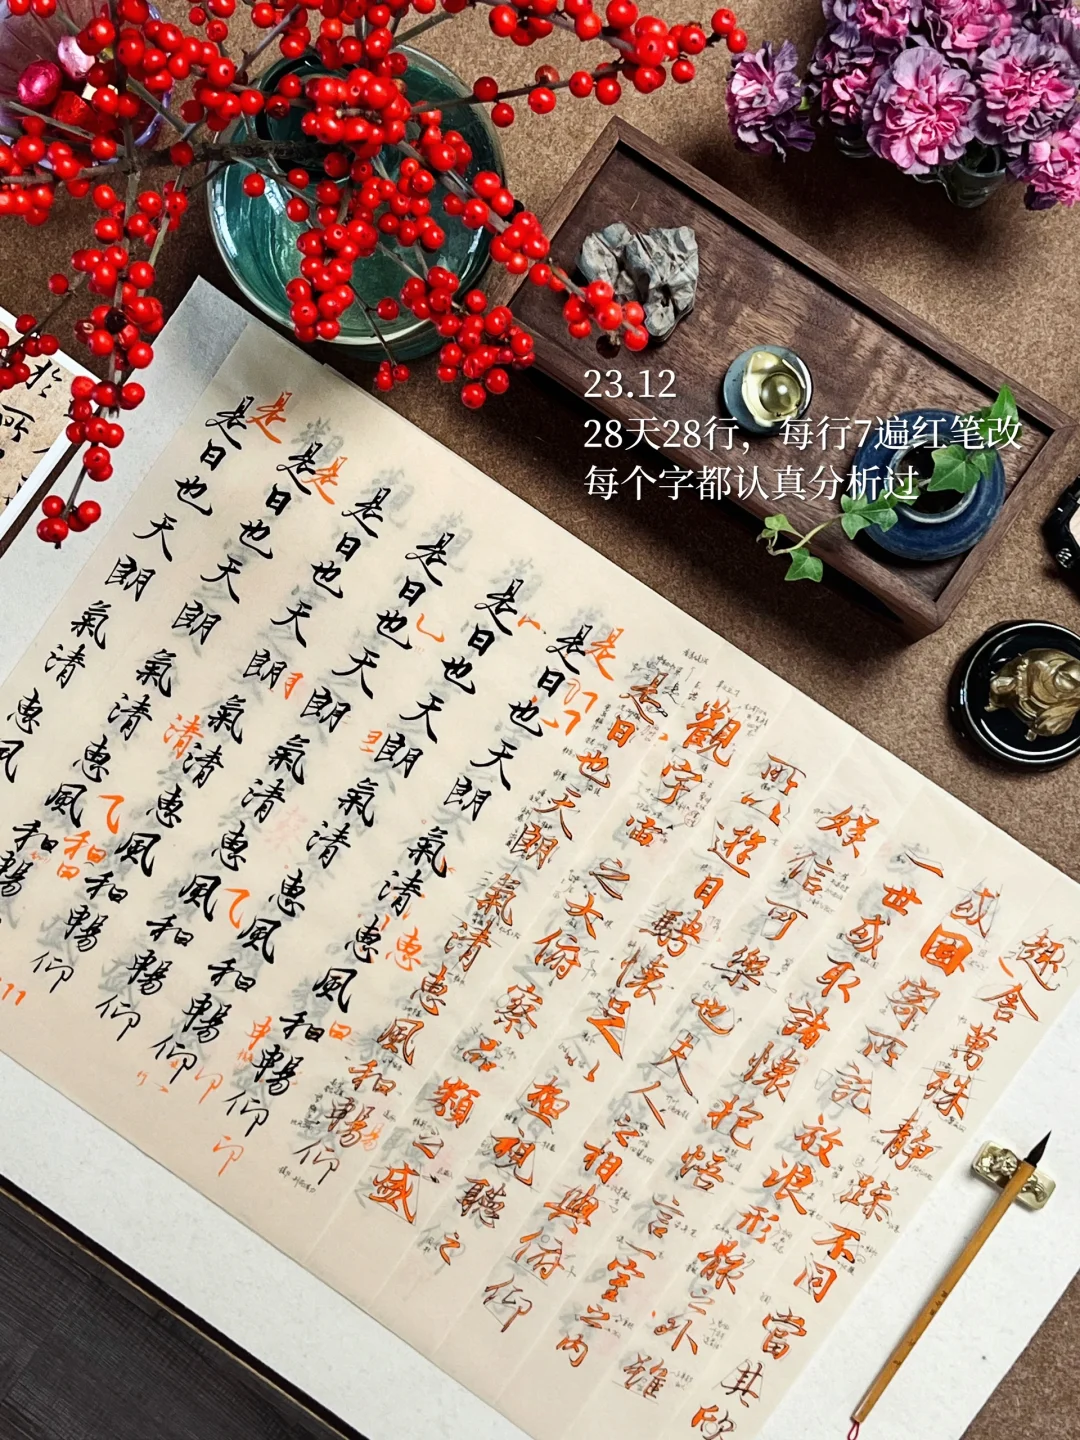 23.12
28天28行，每行7遍红笔改
每个字都认真分析过
趣舍萬殊静躁不同當其欣
或因寄所託放浪形骸之外雖
一世或取諸懷抱悟言一室之內
娱信可樂也夫人之相與俯仰
所以遊目騁懷足以極視聽之
觀宇宙之大俯察品類之盛
是日也天朗氣清惠風和暢仰
是日也天朗氣清惠風和暢仰
是日也天朗氣清惠風和暢仰
是日也天朗氣清惠風和暢仰
是日也天朗氣清惠風和暢仰
是日也天朗氣清惠風和暢
是日也天朗氣清惠風